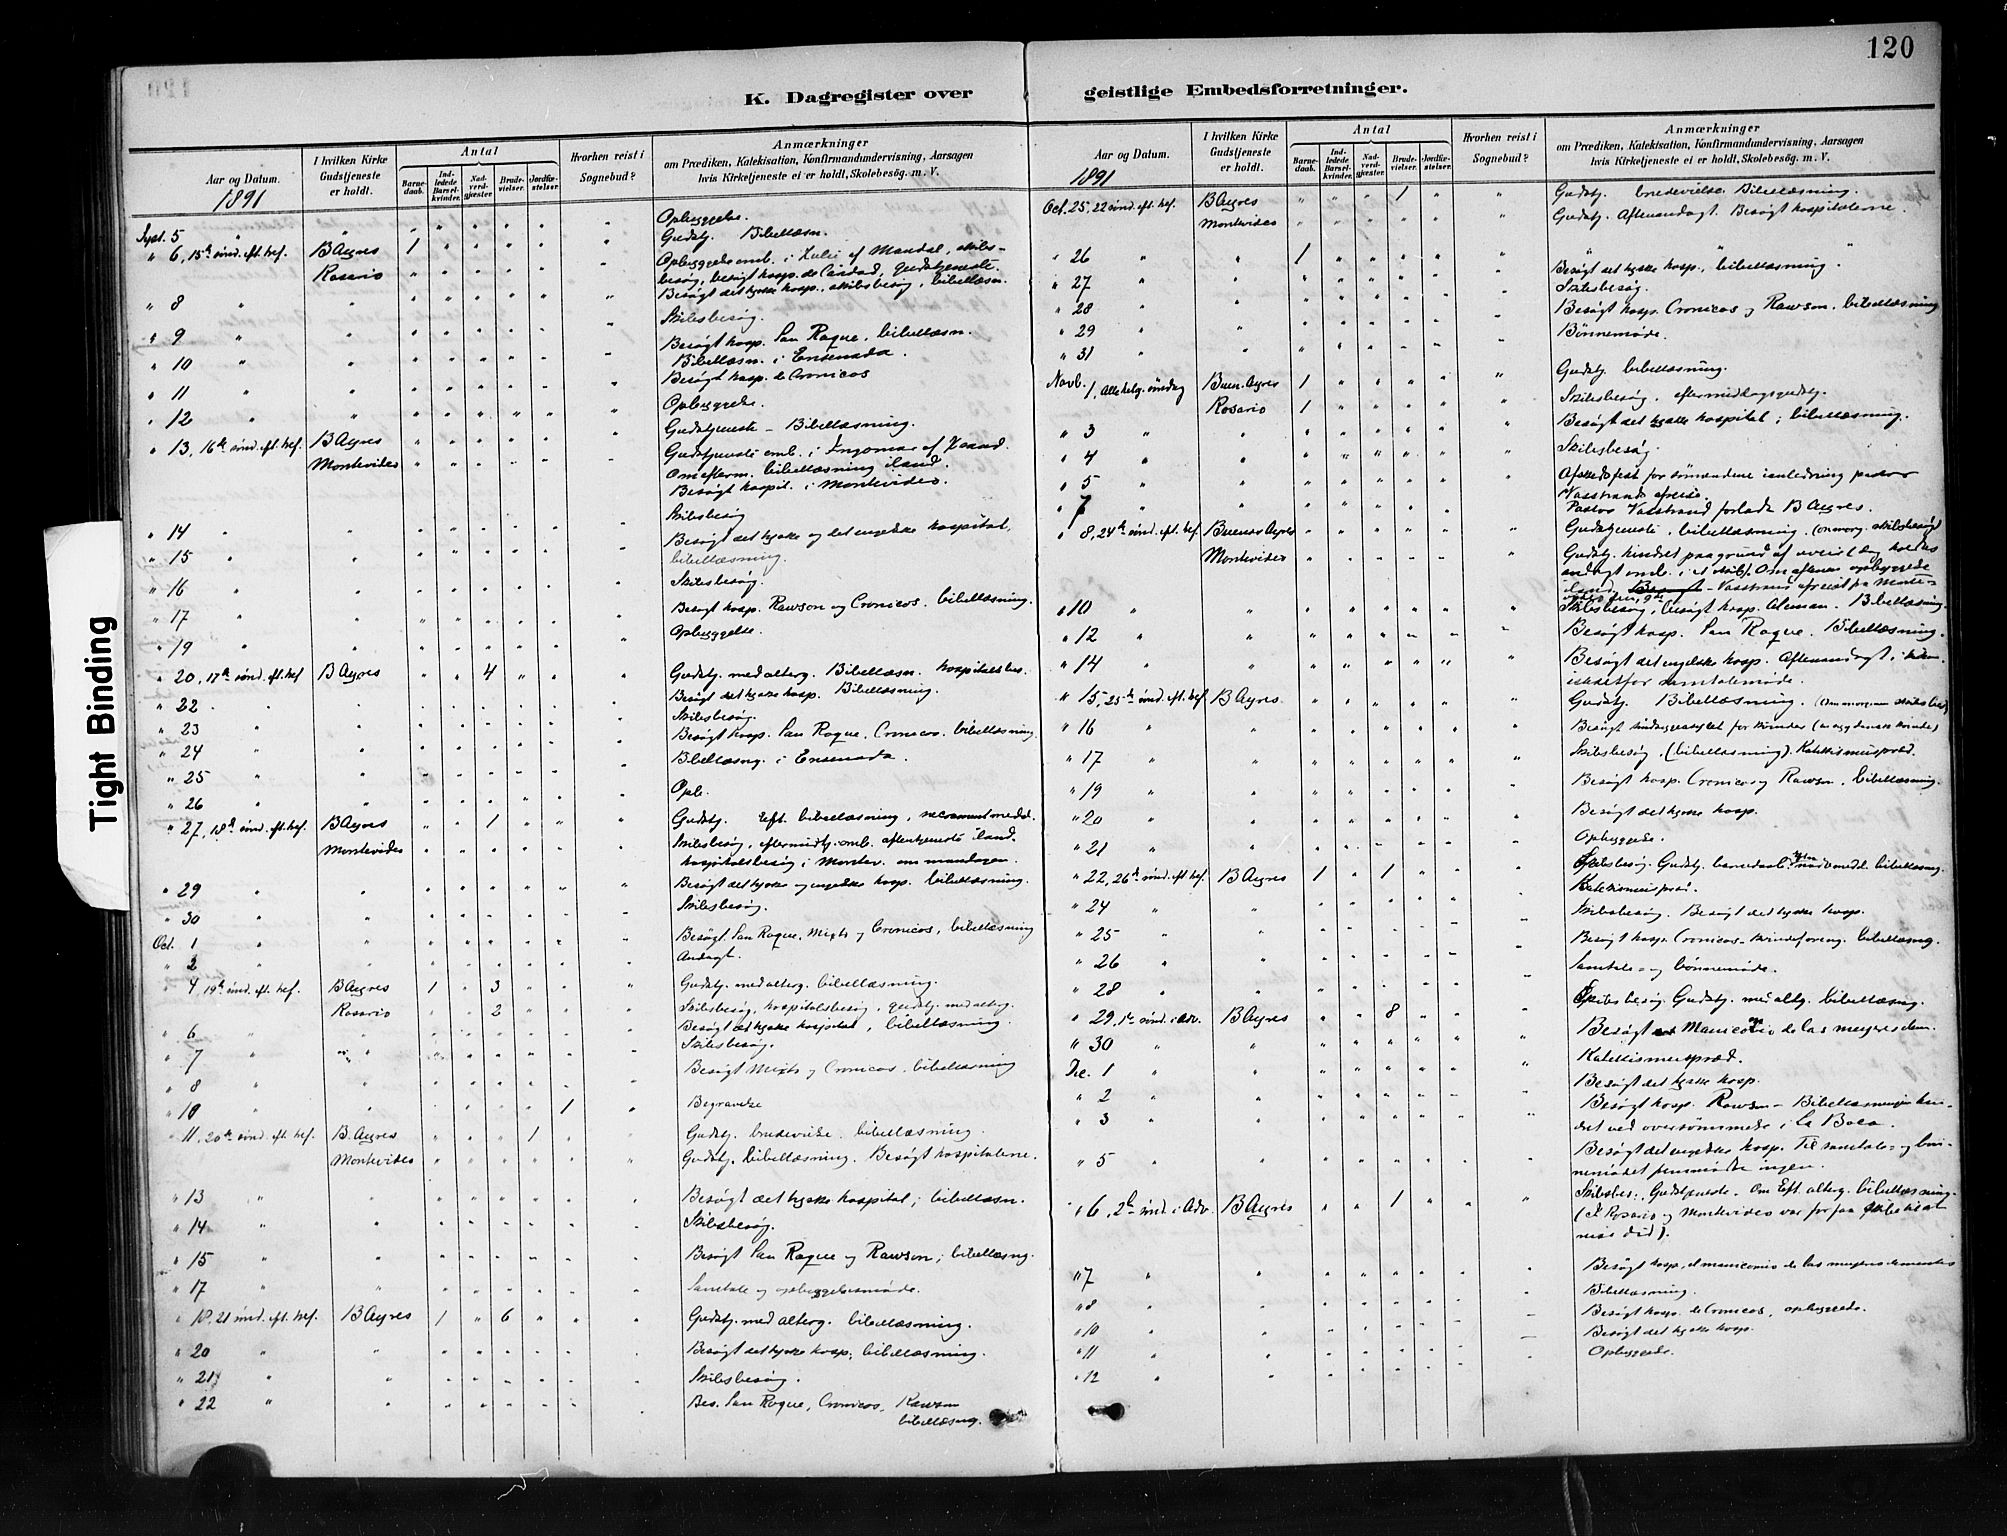 120
K. Dagregister over geistlige Embedsforretninger.
Aar og Datum.
I hvilken Kirke Gudstjeneste er holdt.
Antal
Barnedaab.
Indledede Barselkvinder.
Nadverdgjester.
Brudevielser.
Jordfæstelser.
Hvorhen reist i Sognebud?
Anmærkninger
om Prædiken, Katekisation, Konfirmandundervisning, Aarsagen
hvis Kirketjeneste ei er holdt, Skolebesøg. m. V.
1891
Sept. 5 Opbyggelse.
" 6, 15de sönd. eft. tref. B Ayres 1 Gudstj. Bibellæsn.
Rosario Opbyggelse omb. i Julie af Mandal, skibs-
besög, besögt hosp. de Caridad, Gudstjeneste.
" 8 Besögt det tyske hosp., skibsbesög, bibellæsn.
" 9 Skibsbesög.
" 10 Besögt hosp. San Roque, bibellæsn.
" 11 Bibellæsn. i Ensenada.
" 12 Besögt hosp. de Cronicos
Opbyggelse.
" 13, 16de sönd. eft. tref. B Ayres Gudstjeneste - Bibellæsning.
Montevideo Gudstjeneste omb. i Ingomar af
Om efterm. bibellæsning iland.
Besögt hospit. i Montevideo.
" 14 Skibsbesög
" 15 Besögt det tyske og det engelske hospital,
bibellæsning.
" 16 Skibsbesög.
" 17 Besögt hosp. Rawson og Cronicos. bibellæsning.
" 19 Opbyggelse.
" 20, 17de sönd. eft. tref B Ayres 4 Gudstj. med alterg. Bibellæsn. hospitalsbes.
" 22 Besögt det tyske hosp. Bibellæsning.
" 23 Skibsbesög.
" 24 Besögt hosp. San Roque, Cronicos. bibellæsning.
" 25 Bibellæsng. i Ensenada.
" 26 Opb.
" 27, 18de sönd. eft. tref. B Ayres 1 Gudstj. Eft. bibellæsning, sacrament medd.
Montevideo Skibsbesög, eftermidtj. omb. aftentjeneste iland.
hospitalsbesög i Montev. om mandagen.
" 29 Besögt det tyske og engelske hosp. bibellæsning.
" 30 Skibsbesög.
Oct. 1 Besögt San Roque, Mixto og Cronicos, bibellæsning
" 2 Andagt.
" 4, 19de sönd. eft. tref. B Ayres 1 3 Gudstj. med alterg. bibellæsning.
Rosario 2 Skibsbesög, hospitalsbesög, gudstj. med alterg.
" 6 Besögt det tyske hospital, bibellæsning.
" 7 Skibsbesög.
" 8 Besögt Mixto og Cronicos. bibellæsning
" 10 1 Begravelse
" 11, 20de sönd. eft. tref. B. Ayres 1 Gudstj. brudevielse. bibellæsning.
Montevideo Gudstj. bibellæsning. Besögt hospitalerne.
" 13 Besögt det tyske hospital; bibellæsn.
" 14 Skibsbesög.
" 15 Besögt San Roque og Rawson; bibellæsng.
" 17 Samtale og opbyggelsesmöde.
" 18, 21 sönd. eft. tref. B Ayres 1 6 Gudstj. med alterg. bibellæsning.
" 20 Besögt det tyske hosp.; bibellæsning.
" 21 Skibsbesög.
" 22 Bes. San Roque, Cronicos, Rawson
bibellæsng.
Aar og Datum.
I hvilken Kirke Gudstjeneste er holdt.
Antal
Barnedaab.
Indledede Barselkvinder.
Nadverdgjester.
Brudevielser.
Jordfæstelser.
Hvorhen reist i Sognebud?
Anmærkninger
om Prædiken, Katekisation, Konfirmandundervisning, Aarsagen
hvis Kirketjeneste ei er holdt, Skolebesøg. m. V.
1891
Oct. 25, 22 sönd. eft. tref. B Ayres 1 Gudstj. brudevielse. Bibellæsning.
Montevideo Gudstj. Aftenandagt. Besögt hospitalerne.
" 26 1
" 27 Besögt det tyske hosp., bibellæsning.
" 28 Skibsbesög.
" 29 Besögt hosp. Cronicos og Rawson. bibellæsning
" 31 Bönnemöde.
Novb. 1, Alle helg. söndag Buen. Ayres 1 Gudstj. bibellæsning.
Rosario 1 Skibsbesög, eftermiddagsgudstj.
" 3 Besögt det tyske hospital; bibellæsning.
" 4 Skibsbesög.
" 5 Afskedsfest for sömændene i anledning pastor
Vasstrands afreise.
" 7 Pastor Vasstrand forlader B Ayres.
" 8, 24de sönd. eft. tref. Buenos Ayres Gudstjeneste, bibellæsning. (om morg. skibsbesög)
Montevideo Gudstj. hindret paa grund af uveir i dag holdes
andagt omb. i et skib. Om aftenen opbyggelse
iland, Besögt Vasstrand afreist fra Monte-
video den 9de
" 10 Skibsbesög, besögt hosp. Aleman. Bibellæsning.
" 12 Besögt hosp. San Roque. Bibellæsning.
" 14 Besögt det engelske hosp. Aftenandagt i
istedetfor samtalemöde.
" 15, 25de sönd. eft. tref B Ayres Gudstj. Bibellæsning. (Om morgenen skibsbes)
" 16 Besögt sindssygeasylet for kvinder (en syg dansk kvinde)
" 17 Skibsbesög. (bibellæsning). Katekismuspræd.
" 19 Besögt hosp. Cronicos og Rawson, bibellæsning.
" 20 Besögt det tyske hosp.
" 21 Opbyggelse.
" 22, 26de sönd. eft. tref. B Ayres 1 1 Skibsbesög. Gudstj. barnedaab. bibellæsning.
" 24 Katekismuspræd.
" 25 Skibsbesög. Besögt det tyske hosp.
" 26 Besögt hosp. Cronicos - kvindeforeng. bibellæsng.
" 28 Samtale- og bönnemöde.
" 29, 1ste sönd. i Adv. B Ayres 8 Skibsbesög. Gudstj. med altg. bibellæsng.
" 30 Besögt Manicomio de las mujeres dem.
Dec. 1 Katekismuspræd.
" 2 Besögt det tyske hosp.
" 3 Besögt hosp. Rawson - Bibellæsningen hin-
dret ved oversömmelse i La Boca.
" 5 Besögt det engelske hosp. Til samtale- og bön-
nemödet fremmödte ingen.
" 6, 2den sönd. i Adv. B Ayres 1 Skibsbes., Gudstjeneste. Om Eft. alterg. bibellæsning.
(I Rosario og Montevideo var for faa skibe til at
reise did).
" 7 Besögt hosp. el manicomio de las mujeres dementes
" 8 Bibellæsning.
" 10 Besögt hosp. de Cronicos, opbyggelse.
" 11 Besögt det tyske hosp.
" 12 Opbyggelse.
Tight Binding